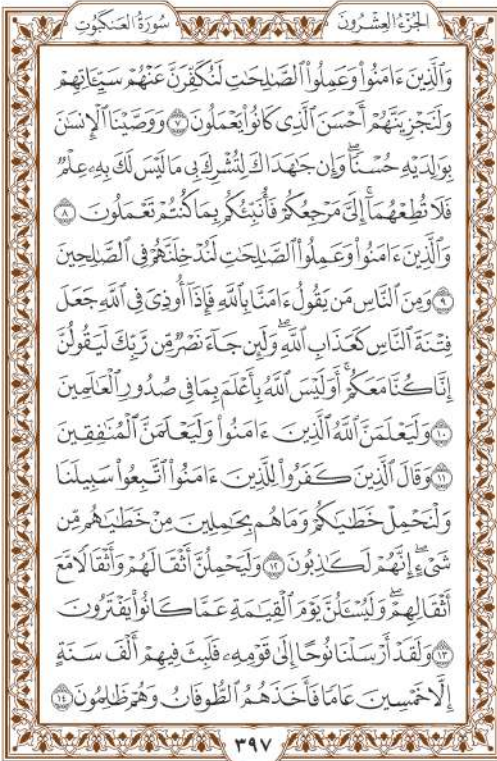 سُورَةُ العَنكَبُوتِ الجُزْءُ العِشْرُونَ
وَٱلَّذِينَ ءَامَنُوا۟ وَعَمِلُوا۟ ٱلصَّـٰلِحَـٰتِ لَنُكَفِّرَنَّ عَنْهُمْ سَيِّـَٔاتِهِمْ
وَلَنَجْزِيَنَّهُمْ أَحْسَنَ ٱلَّذِى كَانُوا۟ يَعْمَلُونَ ٧ وَوَصَّيْنَا ٱلْإِنسَـٰنَ
بِوَٰلِدَيْهِ حُسْنًا ۖ وَإِن جَـٰهَدَاكَ لِتُشْرِكَ بِى مَا لَيْسَ لَكَ بِهِۦ عِلْمٌ
فَلَا تُطِعْهُمَآ ۚ إِلَىَّ مَرْجِعُكُمْ فَأُنَبِّئُكُم بِمَا كُنتُمْ تَعْمَلُونَ ٨
وَٱلَّذِينَ ءَامَنُوا۟ وَعَمِلُوا۟ ٱلصَّـٰلِحَـٰتِ لَنُدْخِلَنَّهُمْ فِى ٱلصَّـٰلِحِينَ
٩ وَمِنَ ٱلنَّاسِ مَن يَقُولُ ءَامَنَّا بِٱللَّهِ فَإِذَآ أُوذِىَ فِى ٱللَّهِ جَعَلَ
فِتْنَةَ ٱلنَّاسِ كَعَذَابِ ٱللَّهِ ۖ وَلَئِن جَآءَ نَصْرٌ مِّن رَّبِّكَ لَيَقُولُنَّ
إِنَّا كُنَّا مَعَكُمْ ۚ أَوَلَيْسَ ٱللَّهُ بِأَعْلَمَ بِمَا فِى صُدُورِ ٱلْعَـٰلَمِينَ
١٠ وَلَيَعْلَمَنَّ ٱللَّهُ ٱلَّذِينَ ءَامَنُوا۟ وَلَيَعْلَمَنَّ ٱلْمُنَـٰفِقِينَ
١١ وَقَالَ ٱلَّذِينَ كَفَرُوا۟ لِلَّذِينَ ءَامَنُوا۟ ٱتَّبِعُوا۟ سَبِيلَنَا
وَلْنَحْمِلْ خَطَـٰيَـٰكُمْ وَمَا هُم بِحَـٰمِلِينَ مِنْ خَطَـٰيَـٰهُم مِّن
شَىْءٍ ۖ إِنَّهُمْ لَكَـٰذِبُونَ ١٢ وَلَيَحْمِلُنَّ أَثْقَالَهُمْ وَأَثْقَالًا مَّعَ
أَثْقَالِهِمْ ۖ وَلَيُسْـَٔلُنَّ يَوْمَ ٱلْقِيَـٰمَةِ عَمَّا كَانُوا۟ يَفْتَرُونَ
١٣ وَلَقَدْ أَرْسَلْنَا نُوحًا إِلَىٰ قَوْمِهِۦ فَلَبِثَ فِيهِمْ أَلْفَ سَنَةٍ
إِلَّا خَمْسِينَ عَامًا فَأَخَذَهُمُ ٱلطُّوفَانُ وَهُمْ ظَـٰلِمُونَ ١٤
٣٩٧